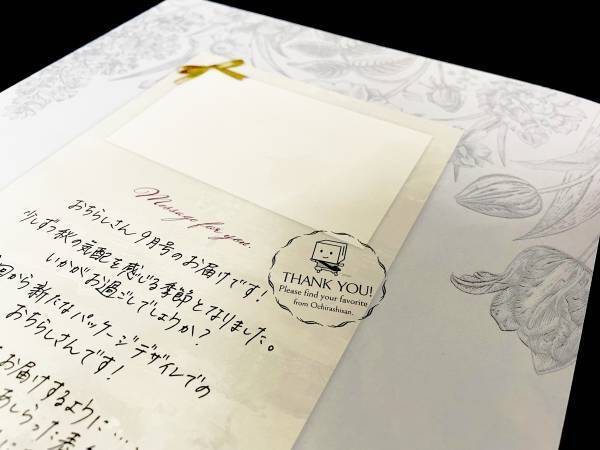 Message for you.
おちらしさん9月号のお届けです！
少しずつ秋の気配を感じる季節となりました。
いかがお過ごしでしょうか？
回から新たなパッケージデザイレでの
おちらしさんです！
お届けするように…
あしらった表
THANK YOU!
Please find your favorite
from Ochirashisan.